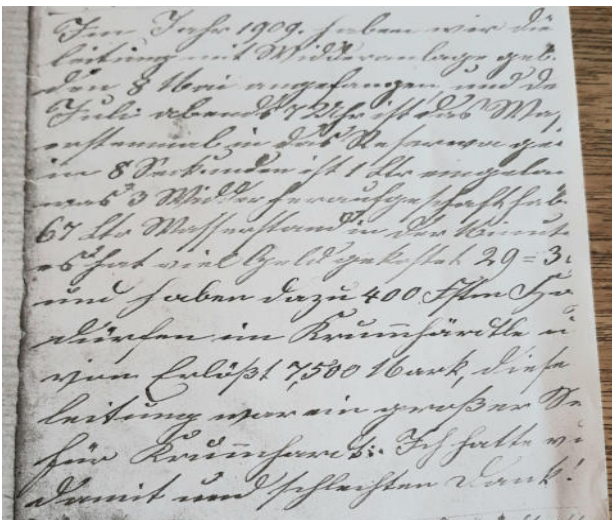 Im Jahr 1909. haben wir die
leitung mit Widderanlage geb.
den 8 Mai angefangen und de
Juli abends 7 Uhr ist das Wa,
erstenmal in das Reserwa gei
in 8 Seckunden ist 1 Ltr eingela
was 3 Widder heraufgeschaft hab
67 Ltr Wasserstand in der Minut
es hat viel Geld gekostet 29=3
und haben dazu 400 Fstm Ho
dürfen im Krummhärdtle u
vom Erlößt 7,500 Mark, diese
leitung war ein großer Se
für Krummhardt: Ich hatte vi
damit und schlechten Dank!